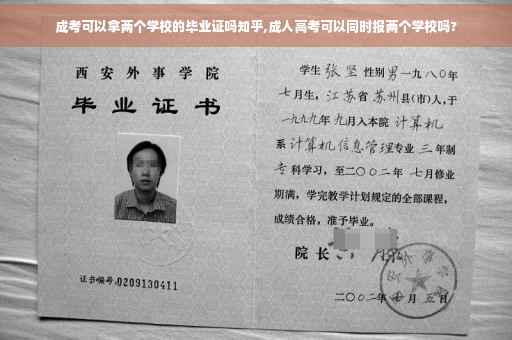 成考可以拿两个学校的毕业证吗知乎,成人高考可以同时报两个学校吗?
西安外事学院
毕业证书
证书编号:0209130411
学生 张坚 性别 男 一九八〇年
七月生，江苏省苏州县(市)人,于
一九九九年九月入本院 计算机
系 计算机信息管理专业 三 年制
专 科学习，至二〇〇二年 七月修业
期满，学完教学计划规定的全部课程，
成绩合格，准予毕业。
院长
二〇〇二年 月 五日